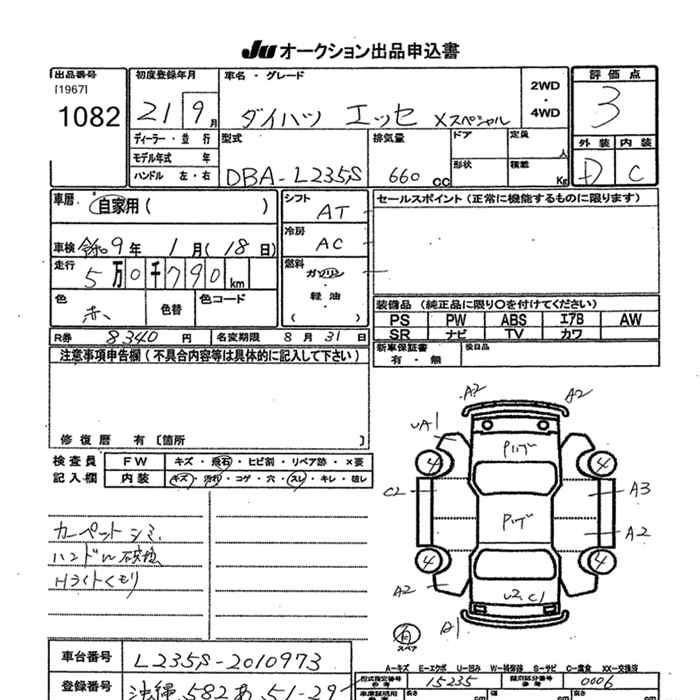 JU オークション出品申込書
出品番号 初度登録年月 車名・グレード 2WD・4WD 評価点
[1967]
1082 21 9月 ダイハツ エッセ Xスペシャル 3
ディーラー・並行 型式 排気量 ドア 定員 人 外装 内装
モデル年式 年 形状 積載 Kg
ハンドル 左・右 DBA-L235S 660 CC D C
車歴 自家用( ) シフト AT セールスポイント(正常に機能するものに限ります)
冷房 AC
車検 令和9年 1月(18日)
走行 5万0千790km 燃料 ガソリン・軽油・( )
色 赤 色替 色コード
装備品(純正品に限り〇を付けてください)
PS PW ABS エアB AW
SR ナビ TV カワ
R券 8340円 名変期限 8月31日
新車保証書 有・無 後日品
注意事項申告欄(不具合内容等は具体的に記入して下さい)
修復歴 有〔箇所 〕
検査員 FW キズ・飛石・ヒビ割・リペア跡・X要
記入欄 内装 キズ・汚れ・コゲ・穴・スレ・キレ・破レ
カーペットシミ
ハンドル
Hライトくもり
A2 A2
A1
4 4
C2 A3
A2
4 4
A2
C1
A1
スペア
A-キズ E-エクボ U-凹み W-補修跡 S-サビ C-腐食 XX-交換済
車台番号 L235S-2010973
型式指定番号 15235 類別区分番号 0006
登録番号 582 あ 51-29
長さ cm 幅 cm 高さ cm